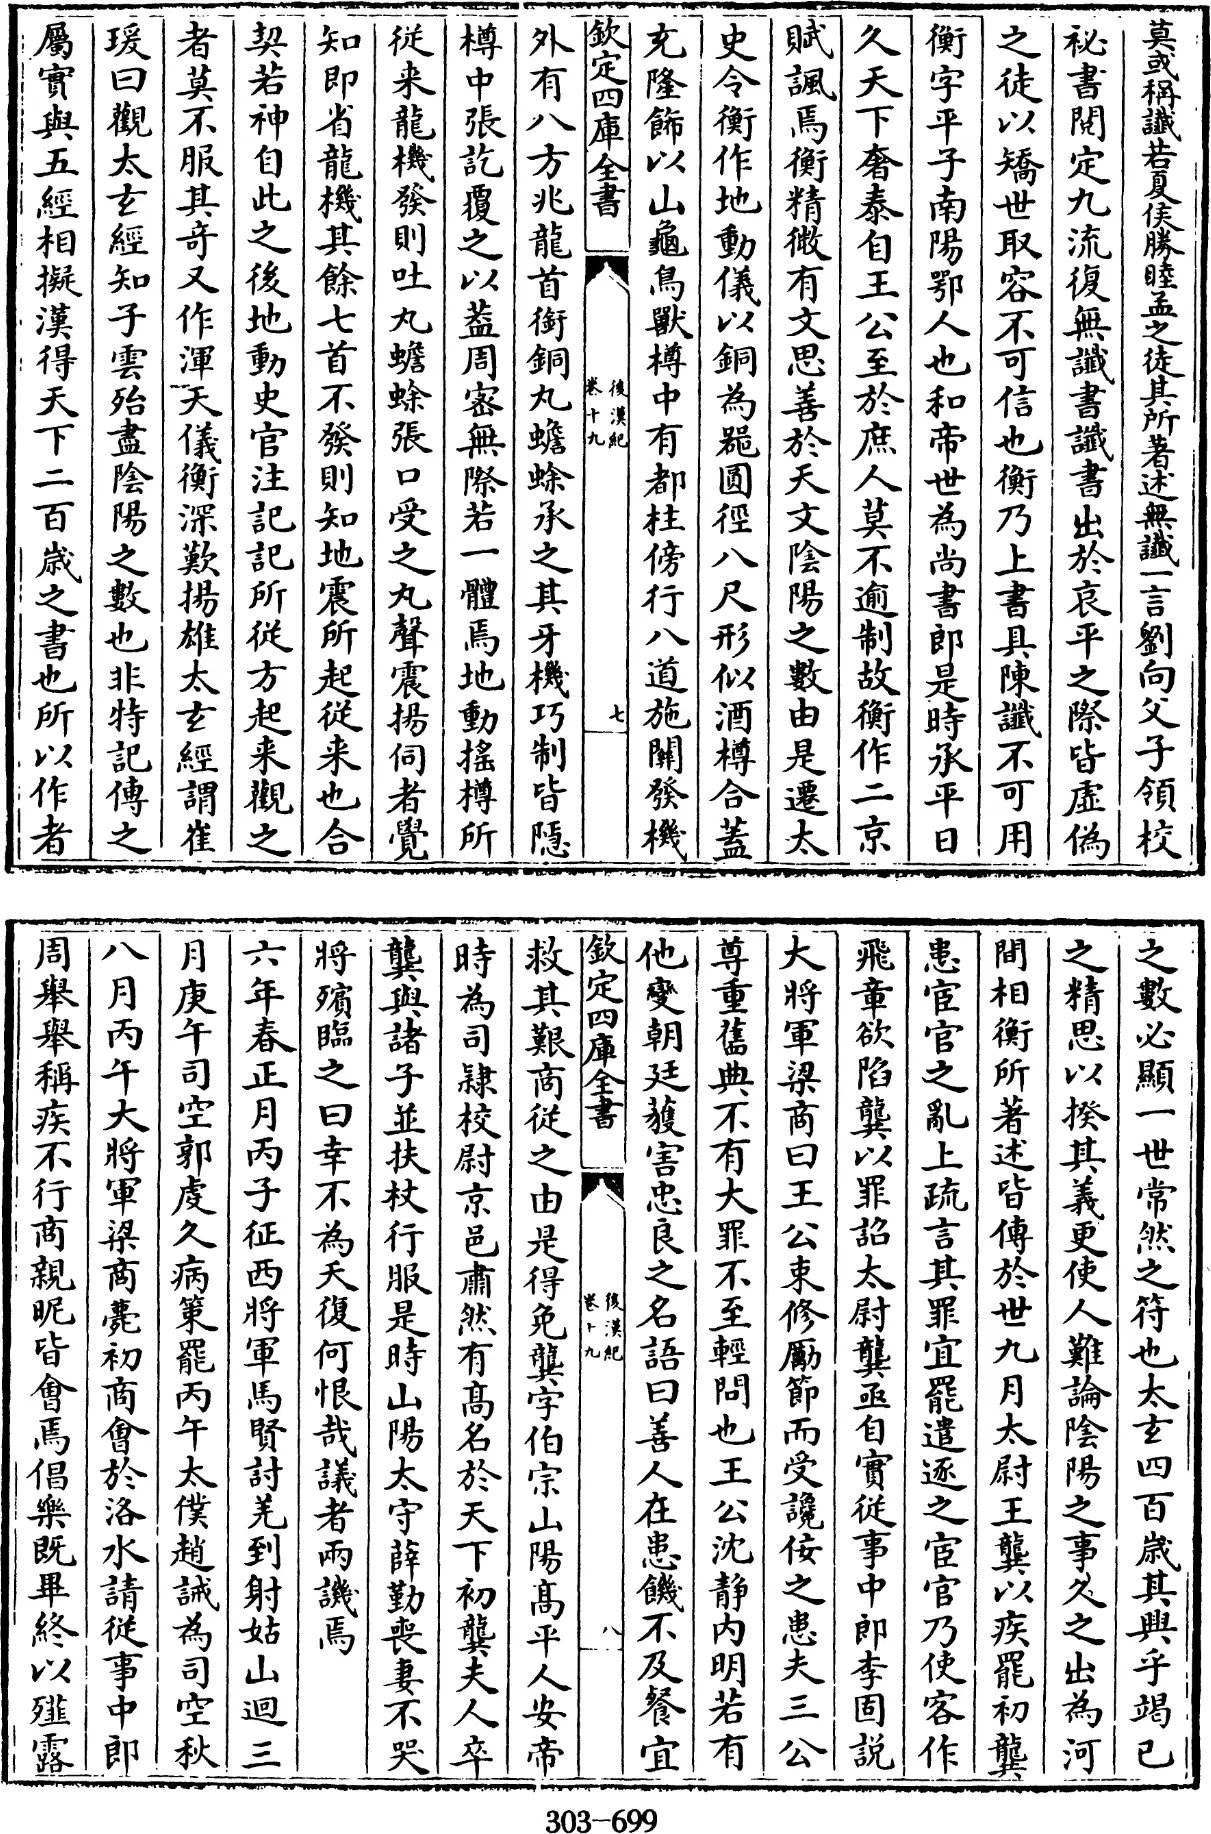 莫或稱讖若夏侯勝眭孟之徒其所著述無讖一言劉向父子領校
祕書閱定九流復無讖書讖書出於哀平之際皆虛偽
之徒以矯世取容不可信也衡乃上書具陳讖不可用
衡字平子南陽鄂人也和帝世為尚書郎是時承平日
久天下奢泰自王公至於庶人莫不逾制故衡作二京
賦諷焉衡精微有文思善於天文陰陽之數由是遷太
史令衡作地動儀以銅為噐圓徑八尺形似酒樽合蓋
充隆飾以山龜鳥獸樽中有都柱傍行八道施關發機
欽定四庫全書
後漢紀
卷十九
七
外有八方兆龍首銜銅丸蟾蜍承之其牙機巧制皆隠
樽中張訖覆之以葢周宻無際若一體焉地動搖樽所
從来龍機發則吐丸蟾蜍張口受之丸聲震揚伺者覺
知即省龍機其餘七首不發則知地震所起從来也合
契若神自此之後地動史官注記記所從方起来觀之
者莫不服其奇又作渾天儀衡深歎揚雄太玄經謂崔
瑗曰觀太玄經知子雲殆盡陰陽之數也非特記傳之
屬實與五經相擬漢得天下二百歲之書也所以作者
之數必顯一世常然之符也太玄四百歲其興乎竭已
之精思以揆其義更使人難論陰陽之事久之出為河
間相衡所著述皆傳於世九月太尉王龔以疾罷初龔
患宦官之亂上疏言其罪宜罷遣逐之宦官乃使客作
飛章欲陷龔以罪詔太尉龔亟自實從事中郎李固説
大將軍梁商曰王公束修勵節而受讒佞之患夫三公
尊重舊典不有大罪不至輕問也王公沈静内明若有
他變朝廷獲害忠良之名語曰善人在患饑不及餐宜
欽定四庫全書
後漢紀
卷十九
八
救其艱商從之由是得免龔字伯宗山陽髙平人安帝
時為司隸校尉京邑肅然有髙名於天下初龔夫人卒
龔與諸子並扶杖行服是時山陽太守薛勤喪妻不哭
將殯臨之曰幸不為夭復何恨哉議者兩譏焉
六年春正月丙子征西將軍馬賢討羌到射姑山迴三
月庚午司空郭虔久病策罷丙午太僕趙誡為司空秋
八月丙午大將軍梁商薨初商會於洛水請從事中郎
周舉舉稱疾不行商親昵皆會焉倡樂既畢終以薤露
303-699